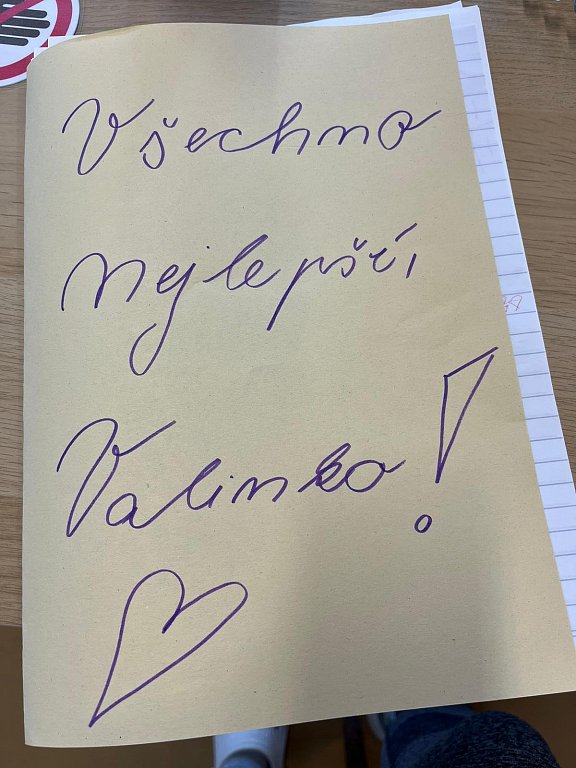 Všechno
nejlepší,
Valinko!